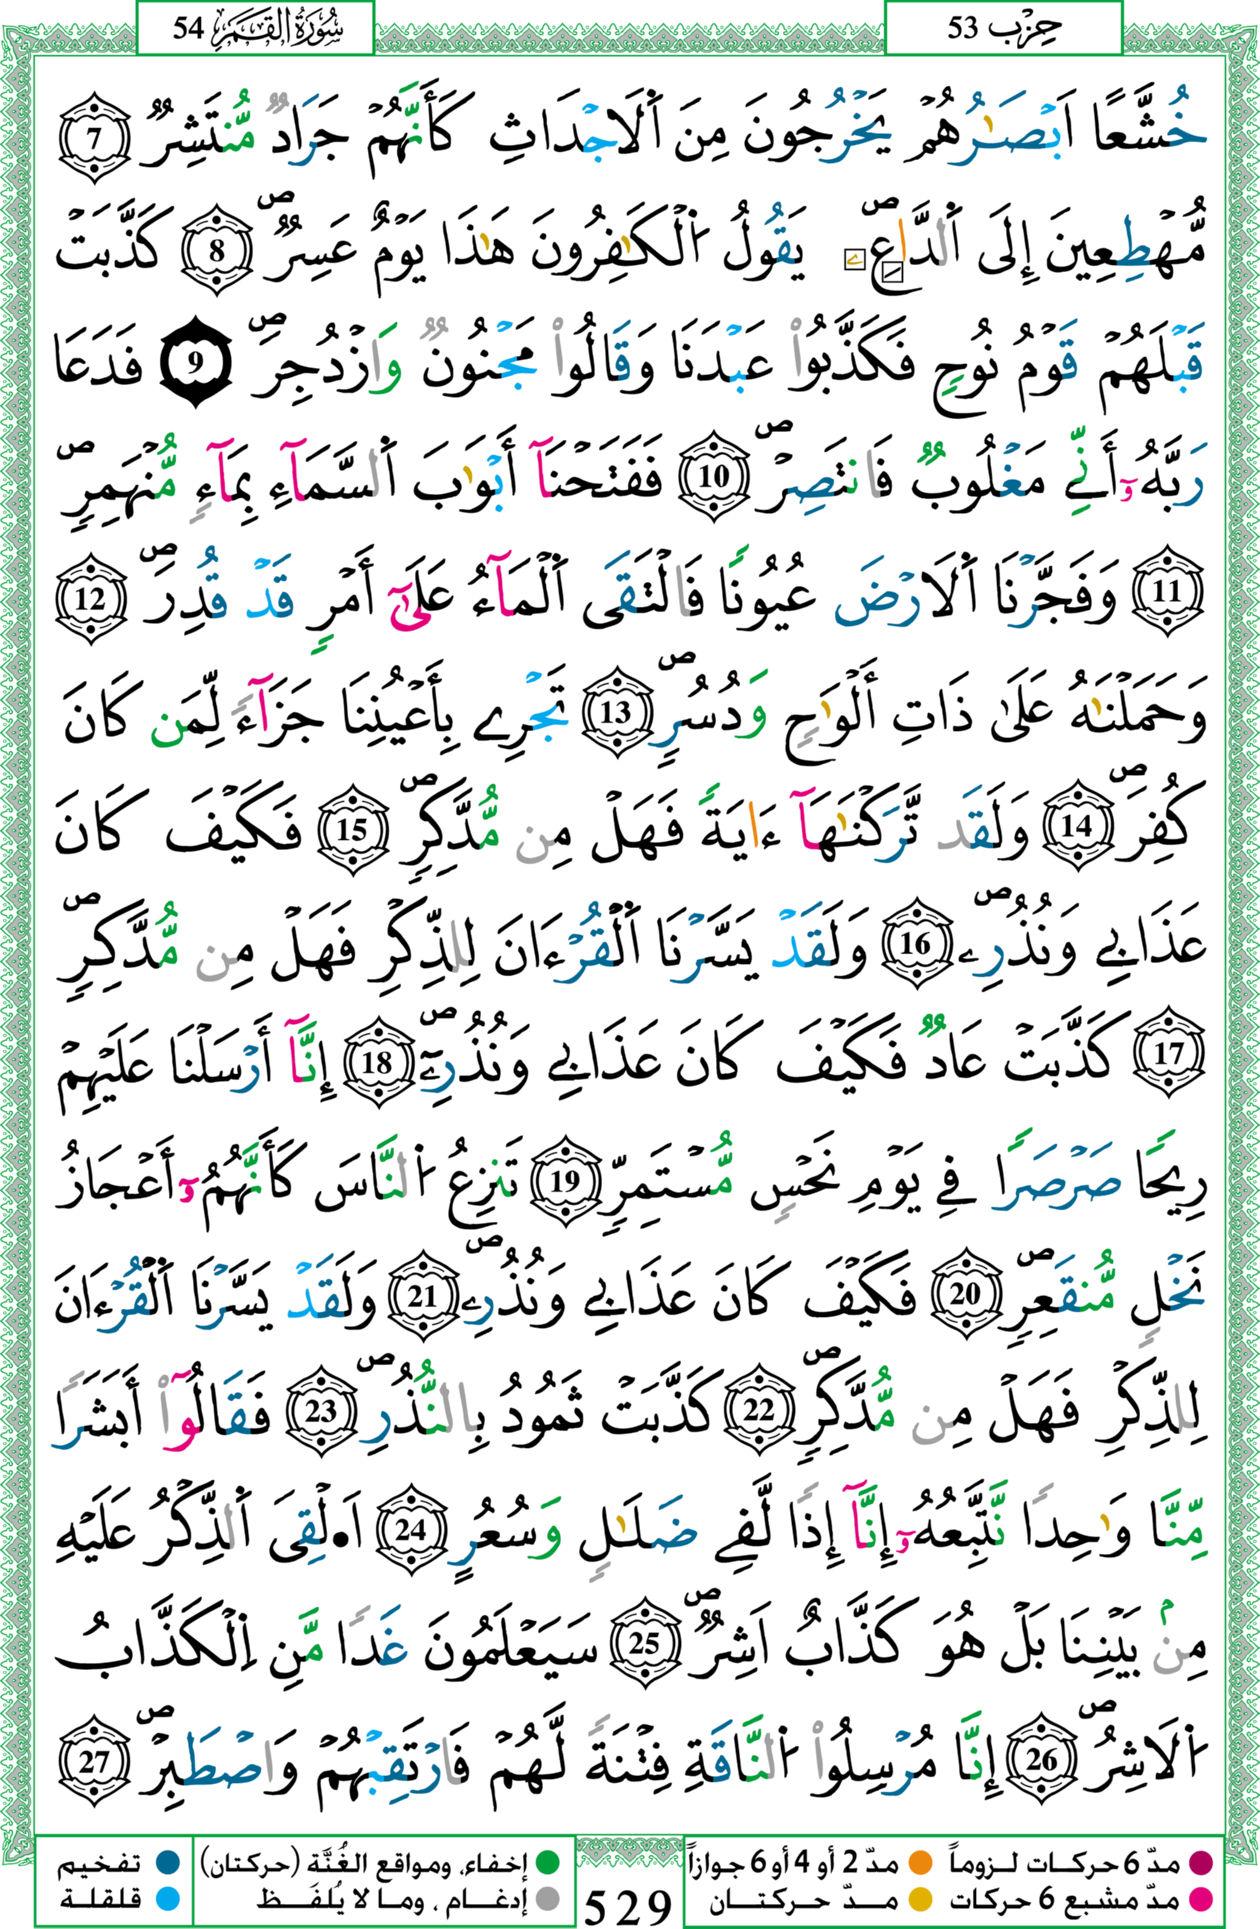 سُورَةُ القَمَرِ 54
حِزْب 53
خُشَّعًا اَبْصَـٰرُهُمْ يَخْرُجُونَ مِنَ اَ۬لَاجْدَاثِ كَأَنَّهُمْ جَرَادٞ مُّنتَشِرٞ 7
مُّهْطِعِينَ إِلَى اَ۬لدَّاعِۦ يَقُولُ اُ۬لْكَـٰفِرُونَ هَـٰذَا يَوْمٌ عَسِرٞ 8 كَذَّبَتْ
قَبْلَهُمْ قَوْمُ نُوحٖ فَكَذَّبُواْ عَبْدَنَا وَقَالُواْ مَجْنُونٞ وَازْدُجِرَ 9 فَدَعَا
رَبَّهُۥٓ أَنِّے مَغْلُوبٞ فَانتَصِرْ 10 فَفَتَحْنَآ أَبْوَٰبَ اَ۬لسَّمَآءِ بِمَآءٖ مُّنْهَمِرٖ
11 وَفَجَّرْنَا اَ۬لَارْضَ عُيُونٗا فَالْتَقَى اَ۬لْمَآءُ عَلَىٰٓ أَمْرٖ قَدْ قُدِرَ 12
وَحَمَلْنَـٰهُ عَلَىٰ ذَاتِ أَلْوَٰحٖ وَدُسُرٖ 13 تَجْرِے بِأَعْيُنِنَا جَزَآءٗ لِّمَن كَانَ
كُفِرَ 14 وَلَقَد تَّرَكْنَـٰهَآ ءَايَةٗ فَهَلْ مِن مُّدَّكِرٖ 15 فَكَيْفَ كَانَ
عَذَابِے وَنُذُرِۦ 16 وَلَقَدْ يَسَّرْنَا اَ۬لْقُرْءَانَ لِلذِّكْرِ فَهَلْ مِن مُّدَّكِرٖ
17 كَذَّبَتْ عَادٞ فَكَيْفَ كَانَ عَذَابِے وَنُذُرِۦٓ 18 إِنَّآ أَرْسَلْنَا عَلَيْهِمْ
رِيحٗا صَرْصَرٗا فِے يَوْمِ نَحْسٖ مُّسْتَمِرّٖ 19 تَنزِعُ اُ۬لنَّاسَ كَأَنَّهُمُۥٓ أَعْجَازُ
نَخْلٖ مُّنقَعِرٖ 20 فَكَيْفَ كَانَ عَذَابِے وَنُذُرِۦ 21 وَلَقَدْ يَسَّرْنَا اَ۬لْقُرْءَانَ
لِلذِّكْرِ فَهَلْ مِن مُّدَّكِرٖ 22 كَذَّبَتْ ثَمُودُ بِالنُّذُرِ 23 فَقَالُوٓاْ أَبَشَرٗا
مِّنَّا وَٰحِدٗا نَّتَّبِعُهُۥٓ إِنَّآ إِذٗا لَّفِے ضَلَـٰلٖ وَسُعُرٍ 24 اَ۟لْقِىَ اَ۬لذِّكْرُ عَلَيْهِ
مِنۢ بَيْنِنَا بَلْ هُوَ كَذَّابٌ اَشِرٞ 25 سَيَعْلَمُونَ غَدٗا مَّنِ اِ۬لْكَذَّابُ
اُ۬لَاشِرُ 26 إِنَّا مُرْسِلُواْ اُ۬لنَّاقَةِ فِتْنَةٗ لَّهُمْ فَارْتَقِبْهُمْ وَاصْطَبِرْ 27
مدّ 6 حركات لـزوماً مدّ 2 أو 4 أو 6 جوازاً
مدّ مشبع 6 حركات مدّ حركتان
529
إخفاء، ومواقع الغُنَّة (حركتان) تفخيم
إدغام ، وما لا يُلفَظ قلقلة